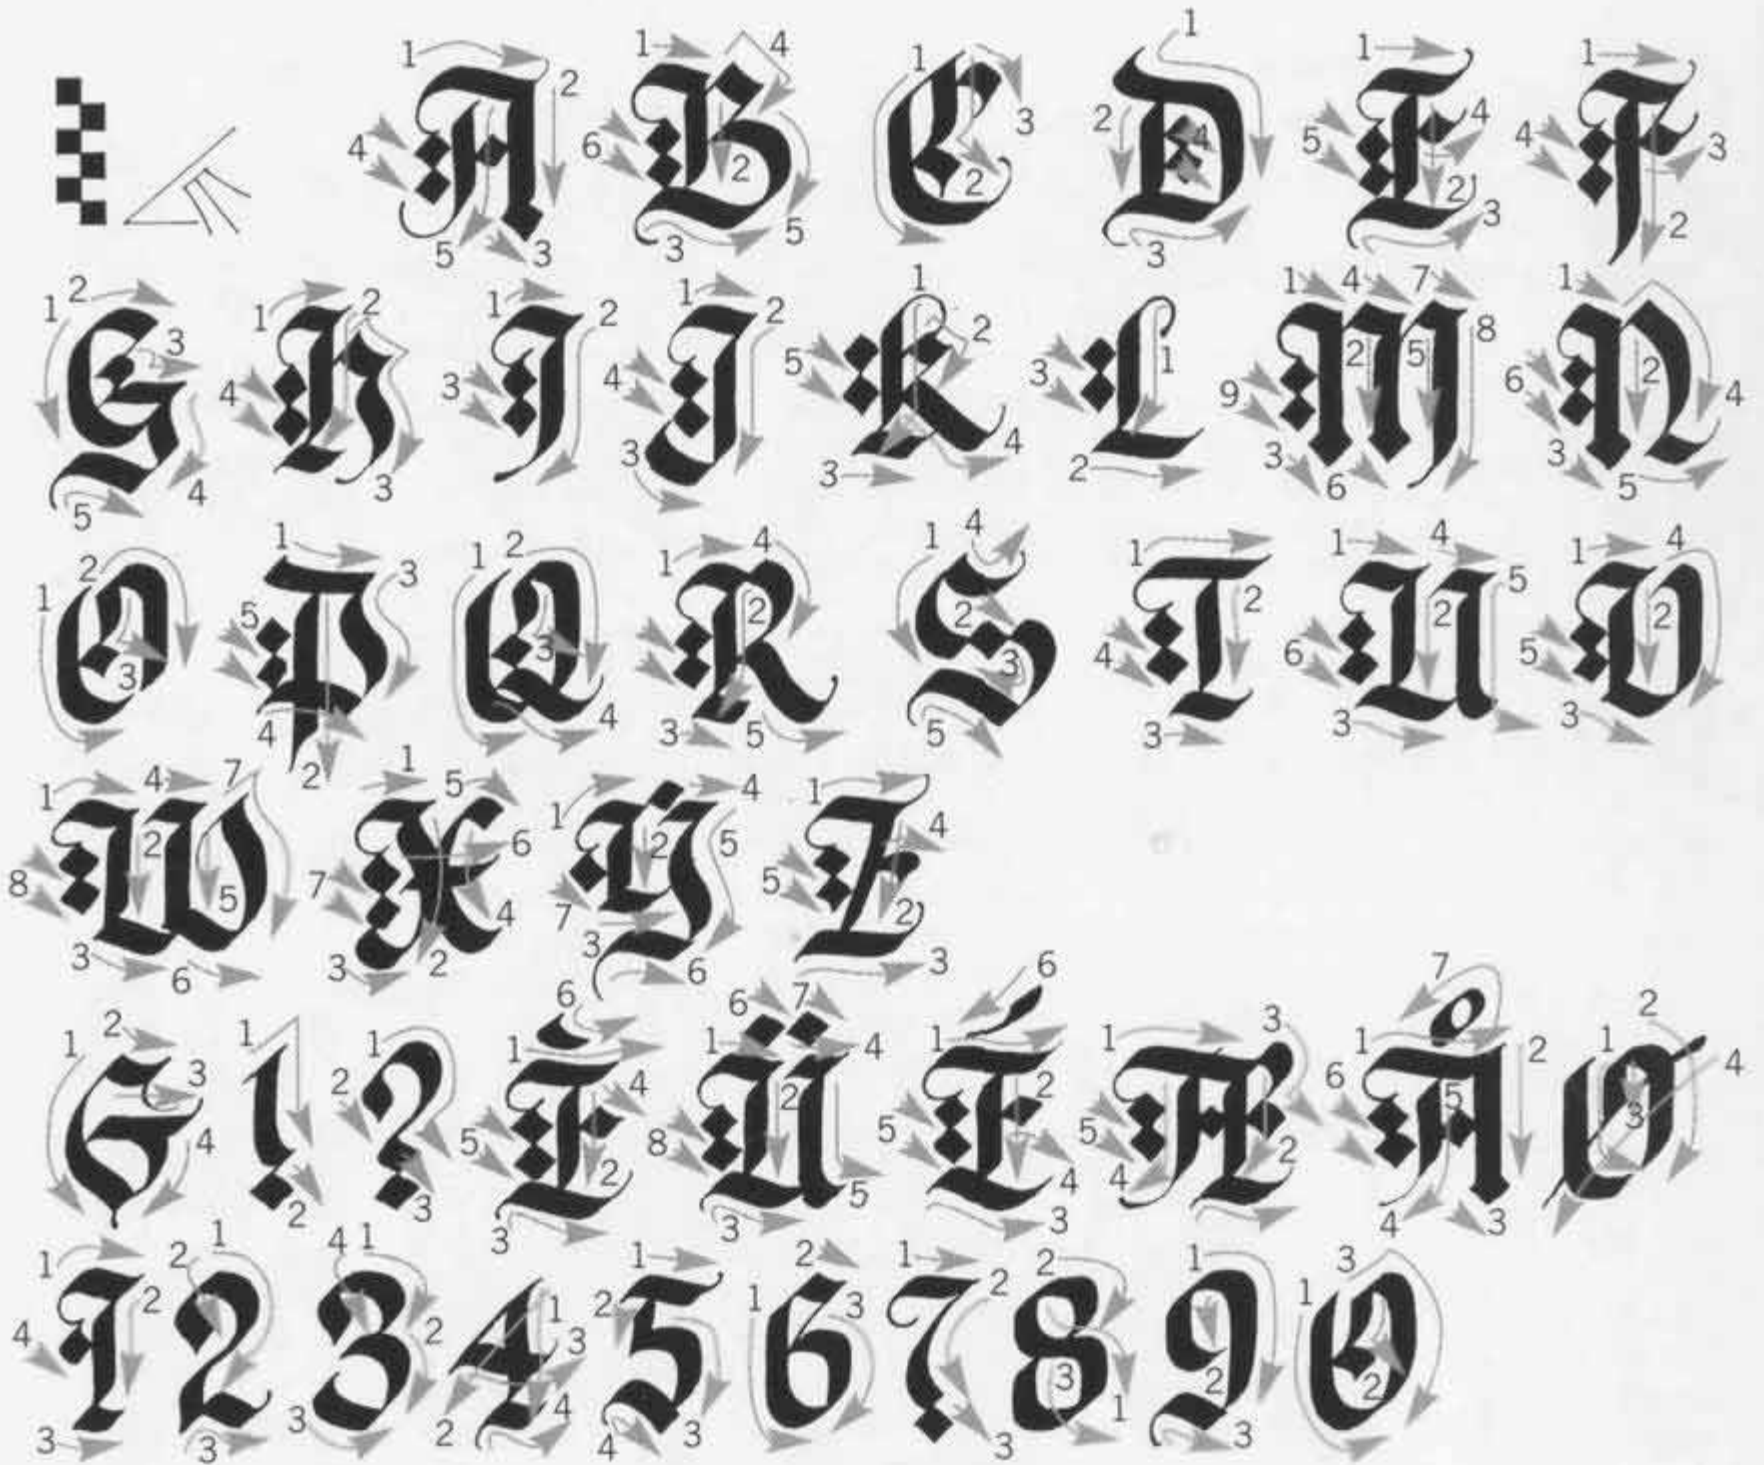 A B C D E F
G H I J K L M N
O P Q R S T U V
W X Y Z
G ! ? É Ü É Æ Å Ø
1 2 3 4 5 6 7 8 9 0